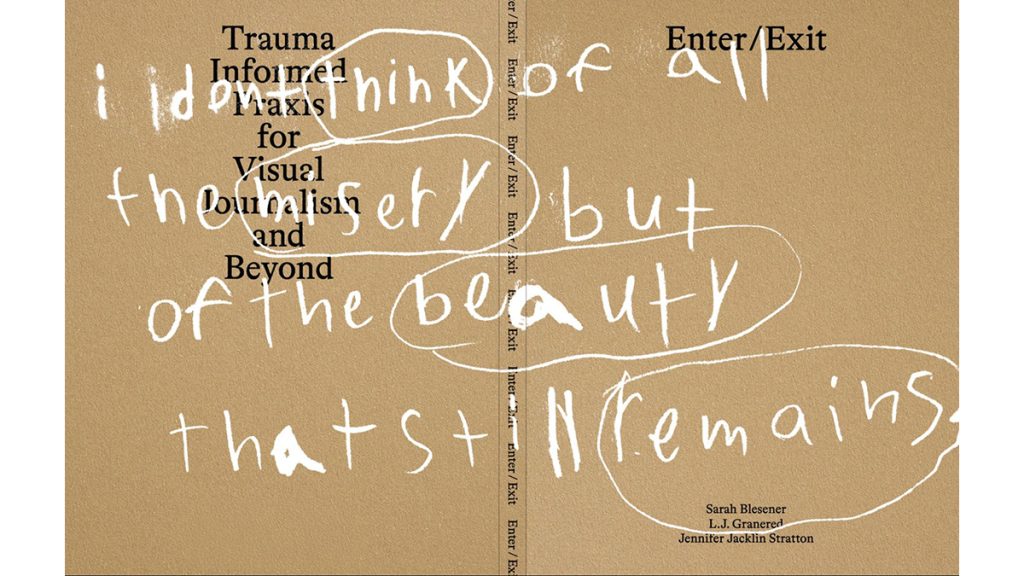 Trauma
Informed
Praxis
for
Visual
Journalism
and
Beyond
Enter/Exit
i dont think of all
the misery but
of the beauty
that still remains.
Enter/Exit Enter/Exit Enter/Exit Enter/Exit Enter/Exit Enter/Exit Enter/Exit Enter/Ex
Sarah Blesener
L.J. Granered
Jennifer Jacklin Stratton